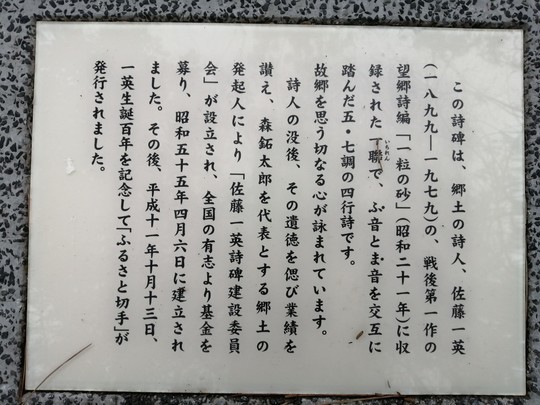 この詩碑は、郷土の詩人、佐藤一英
(一八九九―一九七九)の、戦後第一作の
望郷詩編「一粒の砂」(昭和二十一年)に収
録された一聯で、ぶ音とま音を交互に
踏んだ五・七調の四行詩です。
故郷を思う切なる心が詠まれています。
詩人の没後、その遺徳を偲び業績を
讃え、森鉐太郎を代表とする郷土の
発起人により「佐藤一英詩碑建設委員
会」が設立され、全国の有志より基金を
募り、昭和五十五年四月六日に建立され
ました。その後、平成十一年十月十三日、
一英生誕百年を記念して「ふるさと切手」が
発行されました。